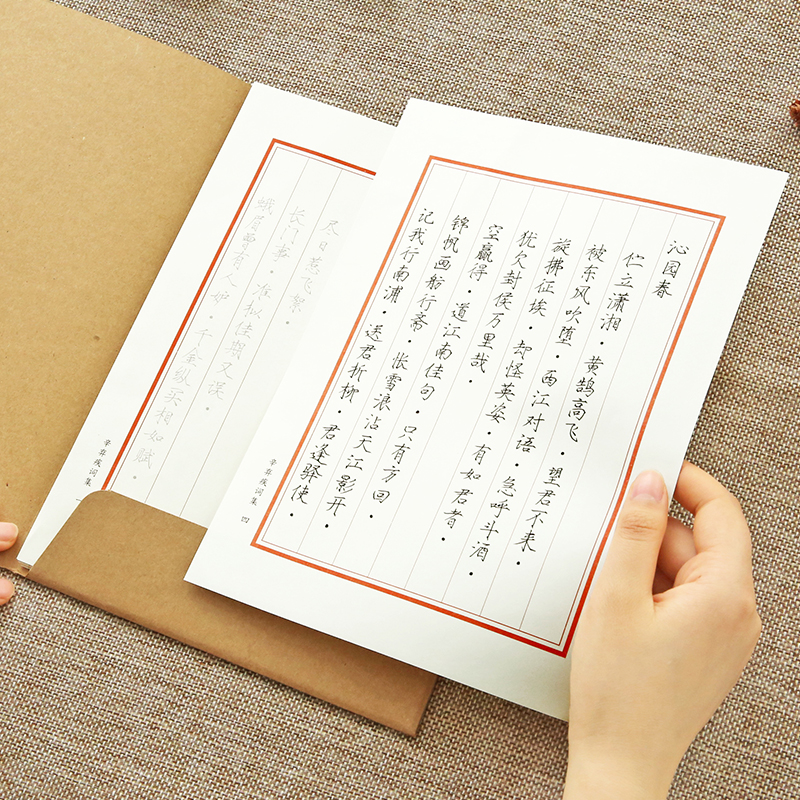 沁园春
伫立潇湘。黄鹄高飞。望君不来。
被东风吹堕。西江对语。急呼斗酒。
旋拂征埃。却怪英姿。有如君者。
犹欠封侯万里哉。
空赢得。道江南佳句。只有方回。
锦帆画舫行斋。怅雪浪沾天江影开。
记我行南浦。送君折柳。君逢驿使。
辛弃疾词集 四
尽日惹飞絮。
长门事。准拟佳期又误。
蛾眉曾有人妒。千金纵买相如赋。
辛弃疾词集 一